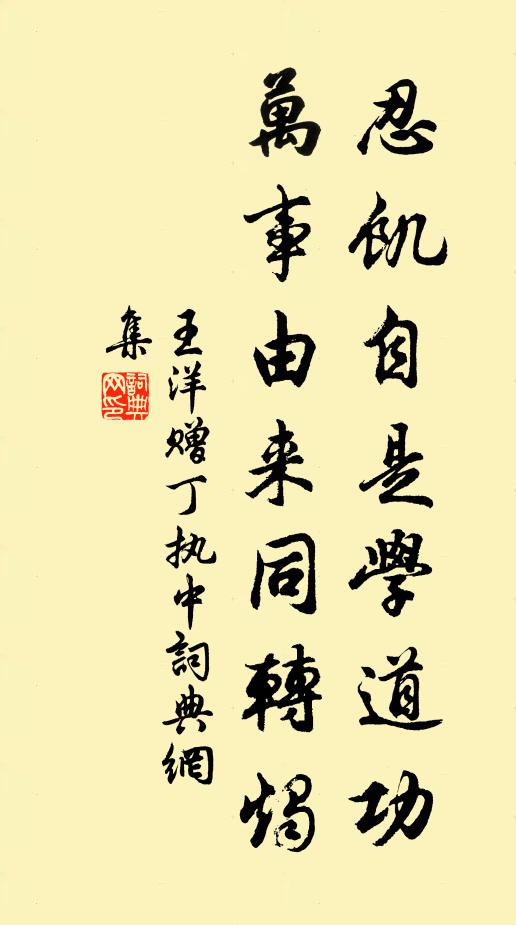 忍飢自是學道功
萬事由来同轉燭
王洋赠丁执中詞典網
集
詞典
网印